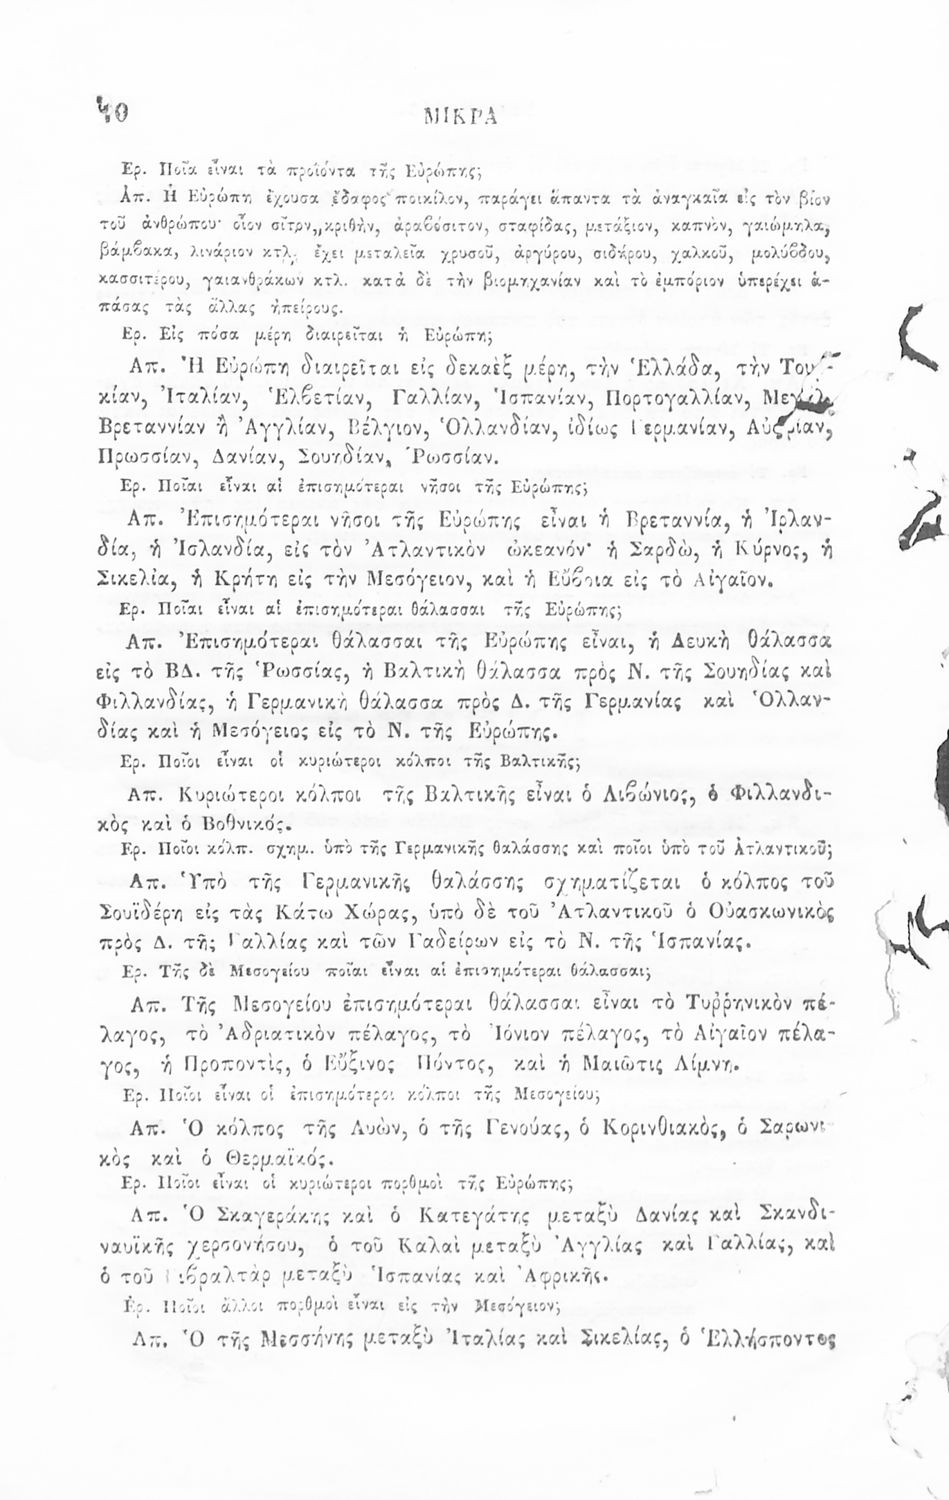 40 ΜΙΚΡΑ
Ερ. Ποῖα εἶναι τὰ προϊόντα τῆς Εὐρώπης;
Ἀπ. Ἡ Εὐρώπη ἔχουσα ἔδαφος ποικίλον, παράγει ἅπαντα τὰ ἀναγκαῖα εἰς τὸν βίον
τοῦ ἀνθρώπου· οἷον σῖτον, κριθὴν, ἀραβόσιτον, σταφίδας, μετάξιον, καπνὸν, γαιώμηλα,
βάμβακα, λινάριον κτλ. ἔχει μεταλεῖα χρυσοῦ, ἀργύρου, σιδήρου, χαλκοῦ, μολύβδου,
κασσιτέρου, γαιανθράκων κτλ. κατὰ δὲ τὴν βιομηχανίαν καὶ τὸ ἐμπόριον ὑπερέχει ἁ-
πάσας τὰς ἄλλας ἠπείρους.
Ερ. Εἰς πόσα μέρη διαιρεῖται ἡ Εὐρώπη;
Απ. Ἡ Εὐρώπη διαιρεῖται εἰς δεκαὲξ μέρη, τὴν Ἑλλάδα, τὴν Τουρ-
κίαν, Ἰταλίαν, Ἑλβετίαν, Γαλλίαν, Ἱσπανίαν, Πορτογαλλίαν, Μεγάλ.
Βρεταννίαν ἢ Ἀγγλίαν, Βέλγιον, Ὁλλανδίαν, ἰδίως Γερμανίαν, Αὐςρίαν,
Πρωσσίαν, Δανίαν, Σουηδίαν, Ῥωσσίαν.
Ερ. Ποῖαι εἶναι αἱ ἐπισημότεραι νῆσοι τῆς Εὐρώπης;
Απ. Ἐπισημότεραι νῆσοι τῆς Εὐρώπης εἶναι ἡ Βρεταννία, ἡ Ἰρλαν-
δία, ἡ Ἰσλανδία, εἰς τὸν Ἀτλαντικὸν ὠκεανόν· ἡ Σαρδὼ, ἡ Κύρνος, ἡ
Σικελία, ἡ Κρήτη εἰς τὴν Μεσόγειον, καὶ ἡ Εὔβοια εἰς τὸ Αἰγαῖον.
Ερ. Ποῖαι εἶναι αἱ ἐπισημότεραι θάλασσαι τῆς Εὐρώπης;
Απ. Ἐπισημότεραι θάλασσαι τῆς Εὐρώπης εἶναι, ἡ Λευκὴ θάλασσα
εἰς τὸ ΒΔ. τῆς Ῥωσσίας, ἡ Βαλτικὴ θάλασσα πρὸς Ν. τῆς Σουηδίας καὶ
Φιλλανδίας, ἡ Γερμανικὴ θάλασσα πρὸς Δ. τῆς Γερμανίας καὶ Ὁλλαν-
δίας καὶ ἡ Μεσόγειος εἰς τὸ Ν. τῆς Εὐρώπης.
Ερ. Ποῖοι εἶναι οἱ κυριώτεροι κόλποι τῆς Βαλτικῆς;
Απ. Κυριώτεροι κόλποι τῆς Βαλτικῆς εἶναι ὁ Λιβώνιος, ὁ Φιλλανδι-
κὸς καὶ ὁ Βοθνικός.
Ερ. Ποῖοι κόλπ. σχημ. ὑπὸ τῆς Γερμανικῆς θαλάσσης καὶ ποῖοι ὑπὸ τοῦ Ἀτλαντικοῦ;
Απ. Ὑπὸ τῆς Γερμανικῆς θαλάσσης σχηματίζεται ὁ κόλπος τοῦ
Σουϊδέρη εἰς τὰς Κάτω Χώρας, ὑπὸ δὲ τοῦ Ἀτλαντικοῦ ὁ Οὐασκωνικὸς
πρὸς Δ. τῆς Γαλλίας καὶ τῶν Γαδείρων εἰς τὸ Ν. τῆς Ἱσπανίας.
Ερ. Τῆς δὲ Μεσογείου ποῖαι εἶναι αἱ ἐπισημότεραι θάλασσαι;
Απ. Τῆς Μεσογείου ἐπισημότεραι θάλασσαι εἶναι τὸ Τυῤῥηνικὸν πέ-
λαγος, τὸ Ἀδριατικὸν πέλαγος, τὸ Ἰόνιον πέλαγος, τὸ Αἰγαῖον πέλα-
γος, ἡ Προποντὶς, ὁ Εὔξινος Πόντος, καὶ ἡ Μαιῶτις Λίμνη.
Ερ. Ποῖοι εἶναι οἱ ἐπισημότεροι κόλποι τῆς Μεσογείου;
Απ. Ὁ κόλπος τῆς Λυὼν, ὁ τῆς Γενούας, ὁ Κορινθιακὸς, ὁ Σαρωνι
κὸς καὶ ὁ Θερμαϊκός.
Ερ. Ποῖοι εἶναι οἱ κυριώτεροι πορθμοὶ τῆς Εὐρώπης;
Απ. Ὁ Σκαγεράκης καὶ ὁ Κατεγάτης μεταξὺ Δανίας καὶ Σκανδι-
ναυϊκῆς χερσονήσου, ὁ τοῦ Καλαὶ μεταξὺ Ἀγγλίας καὶ Γαλλίας, καὶ
ὁ τοῦ Γιβραλτὰρ μεταξὺ Ἱσπανίας καὶ Ἀφρικῆς.
Ερ. Ποῖοι ἄλλοι πορθμοὶ εἶναι εἰς τὴν Μεσόγειον;
Απ. Ὁ τῆς Μεσσήνης μεταξὺ Ἰταλίας καὶ Σικελίας, ὁ Ἑλλήσποντος